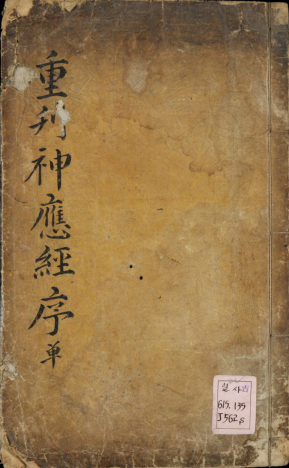 重刋神應經序 単
일 사 古
615.135
J562s